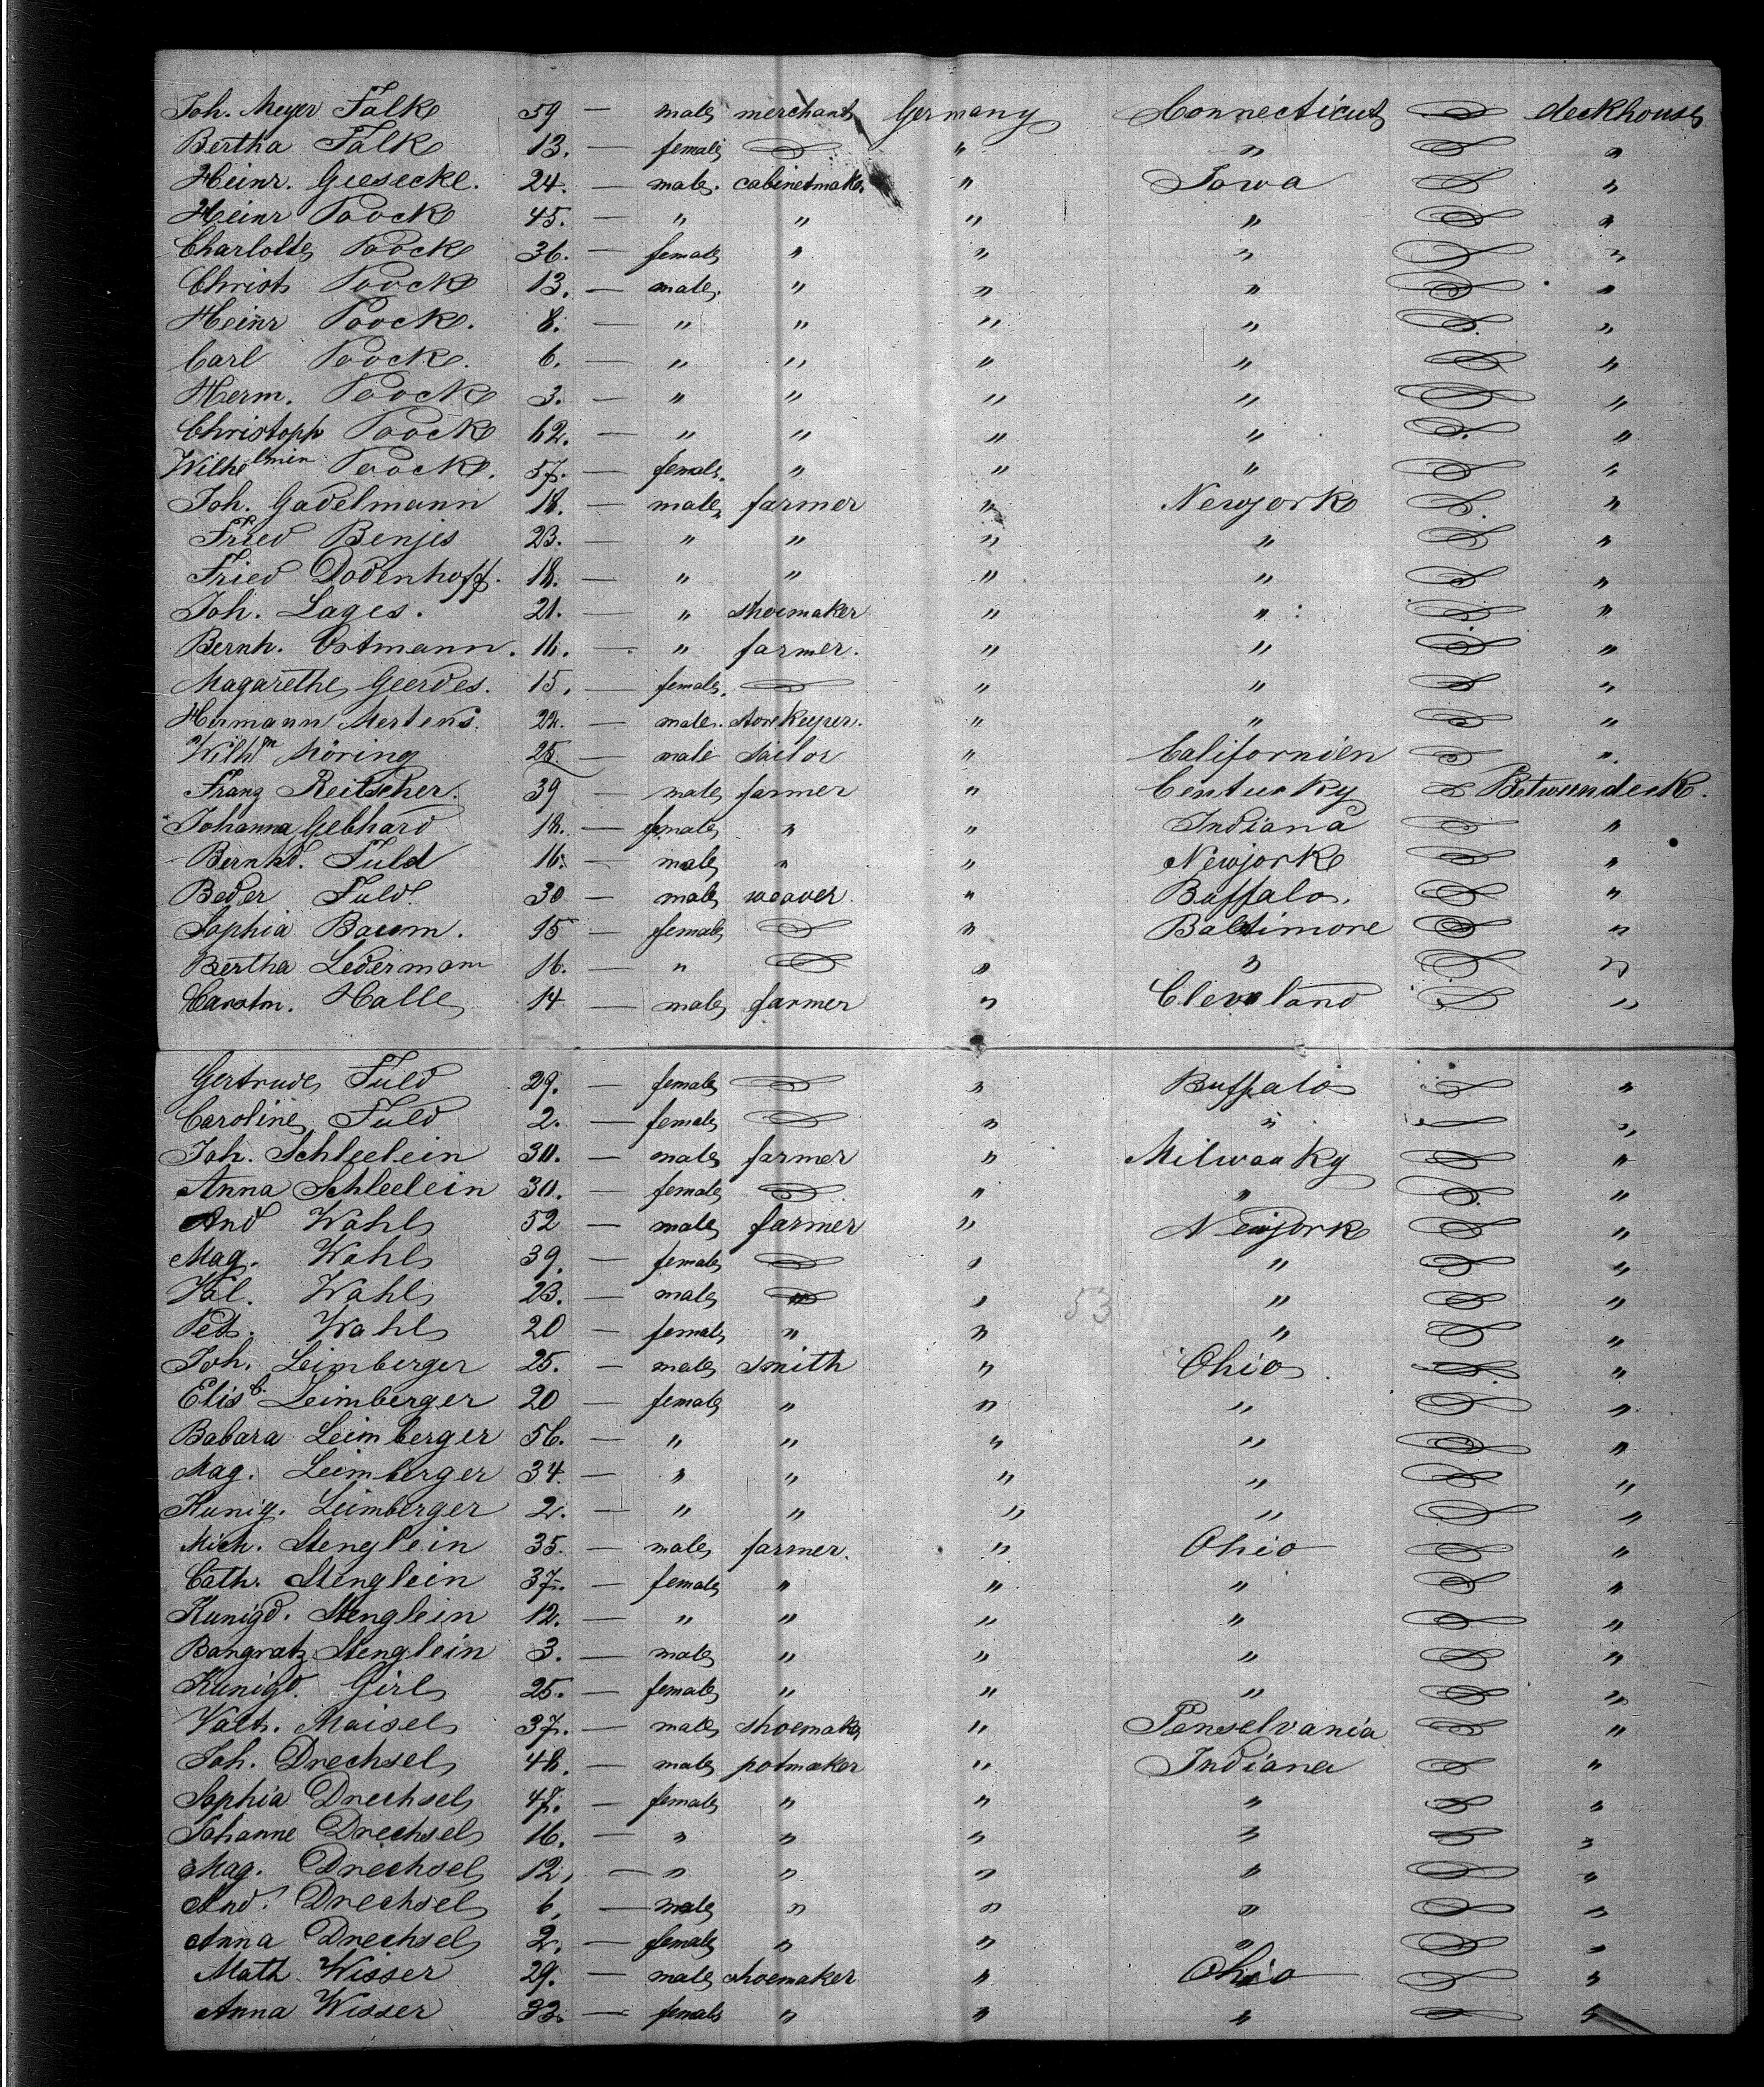 Joh. Meyer Falke 59 — male merchant Germany Connecticut — deckhouse
Bertha Falk 13. — female — " " — "
Heinr. Giesecke. 24. — male. cabinetmaker " Iowa — "
Heinr Poock 45. — " " " " — "
Charlotte Poock 36. — female " " " — "
Christ Poock 13. — male. " " " — "
Heinr Poock. 8. — " " " " — "
Carl Poock. 6. — " " " " — "
Herm. Poock 3. — " " " " — "
Christoph Poock 62. — " " " " — "
Wilhelmin Poock. 57. — female. " " " — "
Joh. Gadelmann 18. — male farmer " Newjork — "
Fried Benjes 23. — " " " " — "
Fried Dodenhoff. 18. — " " " " — "
Joh. Lages. 21. — " shoemaker " " — "
Bernh. Ortmann. 16. — " farmer. " " — "
Magarethe Geerdes. 15. — female. — " " — "
Hermann Mertens. 22. — male. storekeeper. " " — "
Wilhm Möring 25. — male sailor " Californien — "
Franz Reitscher. 39 — male farmer " Centucky — Betweendeck.
Johanna Gebhard 18. — female " " Indiana — "
Bernhd. Fuld 16. — male " " Newjork — "
Beder Fuld. 30 — male weaver. " Buffalo. — "
Sophia Baum. 15 — female — " Baltimore — "
Bertha Ledermann 16. — " — " " — "
Halle 14 — male farmer " Cleveland — "
Gertrude Fuld 29. — female — " Buffalo — "
Caroline Fuld 2. — female — " " — "
Joh. Schleelein 30. — male farmer " Milwauky — "
Anna Schleelein 30. — female — " " — "
And Wahl 52 — male farmer " Newjork — "
Mag. Wahl 39. — female — " " — "
Val. Wahl 23. — male " " 53 " — "
Pet. Wahl 20 — female " " " — "
Joh. Leimberger 25. — male smith " Ohio — "
Elisb. Leimberger 20 — female " " " — "
Babara Leimberger 56. — " " " " — "
Mag. Leimberger 34. — " " " " — "
Kunig. Leimberger 2. — " " " " — "
Mich. Stenglein 35. — male farmer. " Ohio — "
Cath. Stenglein 37. — female " " " — "
Kunigd. Stenglein 12. — " " " " — "
Bangratz Stenglein 3. — male " " " — "
Kunigd. Girl 25. — female " " " — "
Valt. Maisel 37. — male shoemaker " Penselvania — "
Joh. Drechsel 48. — male potmaker " Indiana — "
Sophia Drechsel 47. — female " " " — "
Johanne Drechsel 16. — " " " " — "
Mag. Drechsel 12. — " " " " — "
And. Drechsel 6. — male " " " — "
Anna Drechsel 2. — female " " " — "
Math. Wisser 29. — male shoemaker " Ohio — "
Anna Wisser 33. — female " " " — "